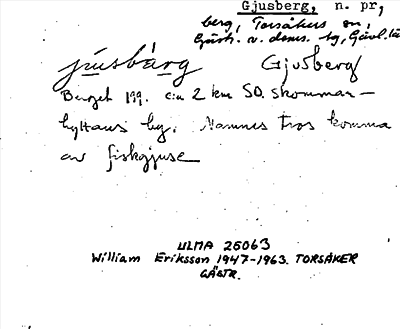 Gjusberg, n. pr,
berg, Torsåkers sn,
Gästr. v. doms. tg, Gävl. lä
jusbárg Gjusberg
Bergek 199. c:a 2 km SO. Skommar-
hyttans by. Namnet tros komma
av fiskgjuse
ULMA 25063
William Eriksson 1947-1963. TORSÅKER
GÄSTR.